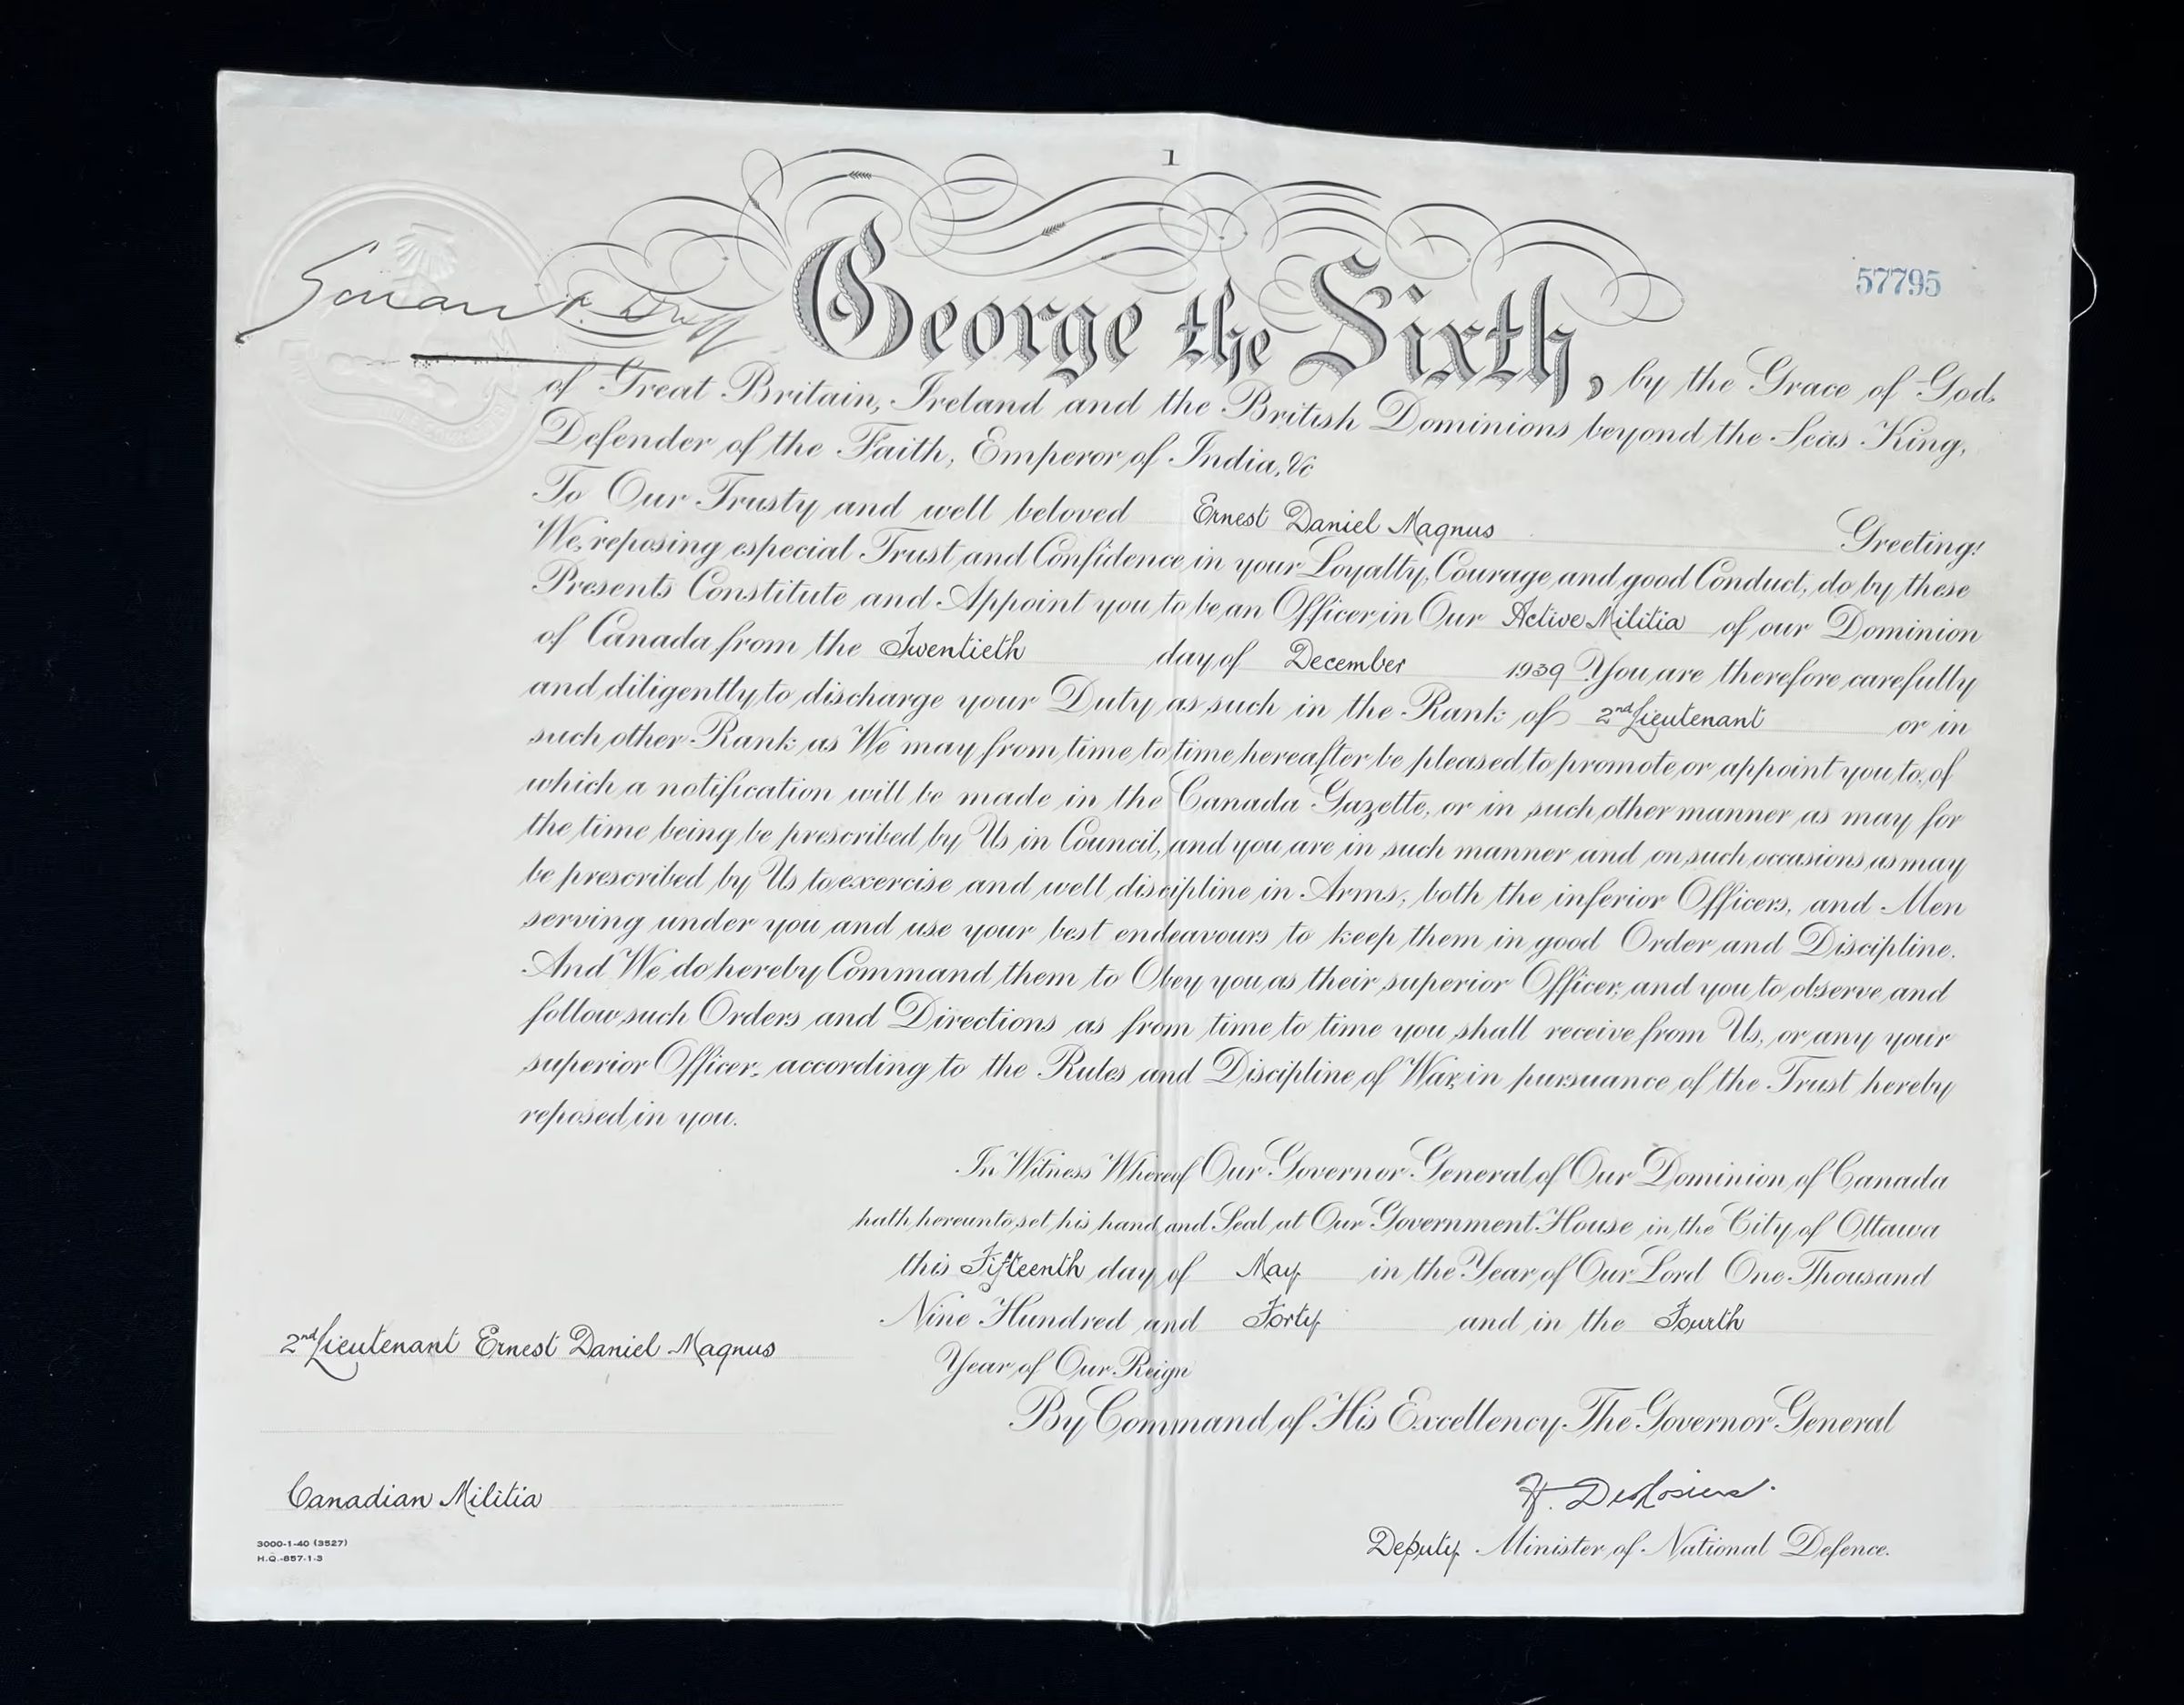 1
57795
George the Sixth, by the Grace of God,
of Great Britain, Ireland and the British Dominions beyond the Seas King,
Defender of the Faith, Emperor of India, &c
To Our Trusty and well beloved Ernest Daniel Magnus Greeting:
We, reposing especial Trust and Confidence in your Loyalty, Courage, and good Conduct, do by these
Presents Constitute and Appoint you to be an Officer in Our Active Militia of our Dominion
of Canada from the Twentieth day of December 1939 You are therefore carefully
and diligently to discharge your Duty as such in the Rank of 2nd Lieutenant or in
such other Rank as We may from time to time hereafter be pleased to promote or appoint you to, of
which a notification will be made in the Canada Gazette, or in such other manner as may for
the time being be prescribed by Us in Council, and you are in such manner and on such occasions as may
be prescribed by Us to exercise and well discipline in Arms, both the inferior Officers, and Men
serving under you and use your best endeavours to keep them in good Order and Discipline.
And We do hereby Command them to Obey you as their superior Officer, and you to observe and
follow such Orders and Directions as from time to time you shall receive from Us, or any your
superior Officer, according to the Rules and Discipline of War, in pursuance of the Trust hereby
reposed in you.
In Witness Whereof Our Governor General of Our Dominion of Canada
hath hereunto set his hand and Seal at Our Government House in the City of Ottawa
this Fifteenth day of May in the Year of Our Lord One Thousand
Nine Hundred and Forty and in the Fourth
Year of Our Reign
By Command of His Excellency The Governor General
H. DesRosiers.
Deputy Minister of National Defence.
2nd Lieutenant Ernest Daniel Magnus
Canadian Militia
3000-1-40 (3527)
H.Q.-857-1-3